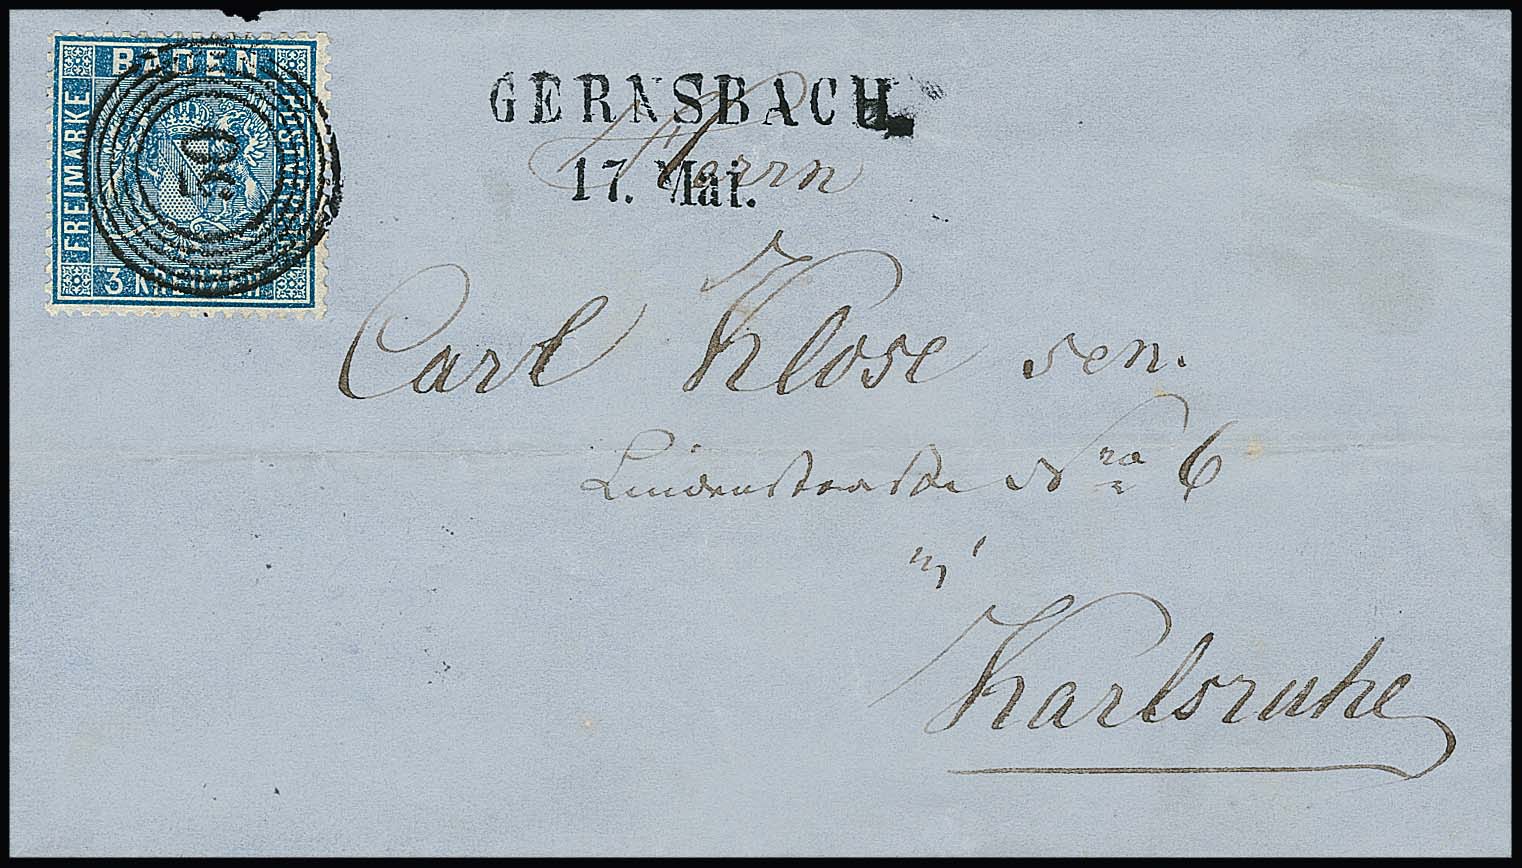 BADEN
FREIMARKE
POSTVEREIN
3 KREUZER
50
GERNSBACH.
17. Mai.
Herrn
Carl Klose sen.
Lindenstrasse Nro 6
in
Karlsruhe